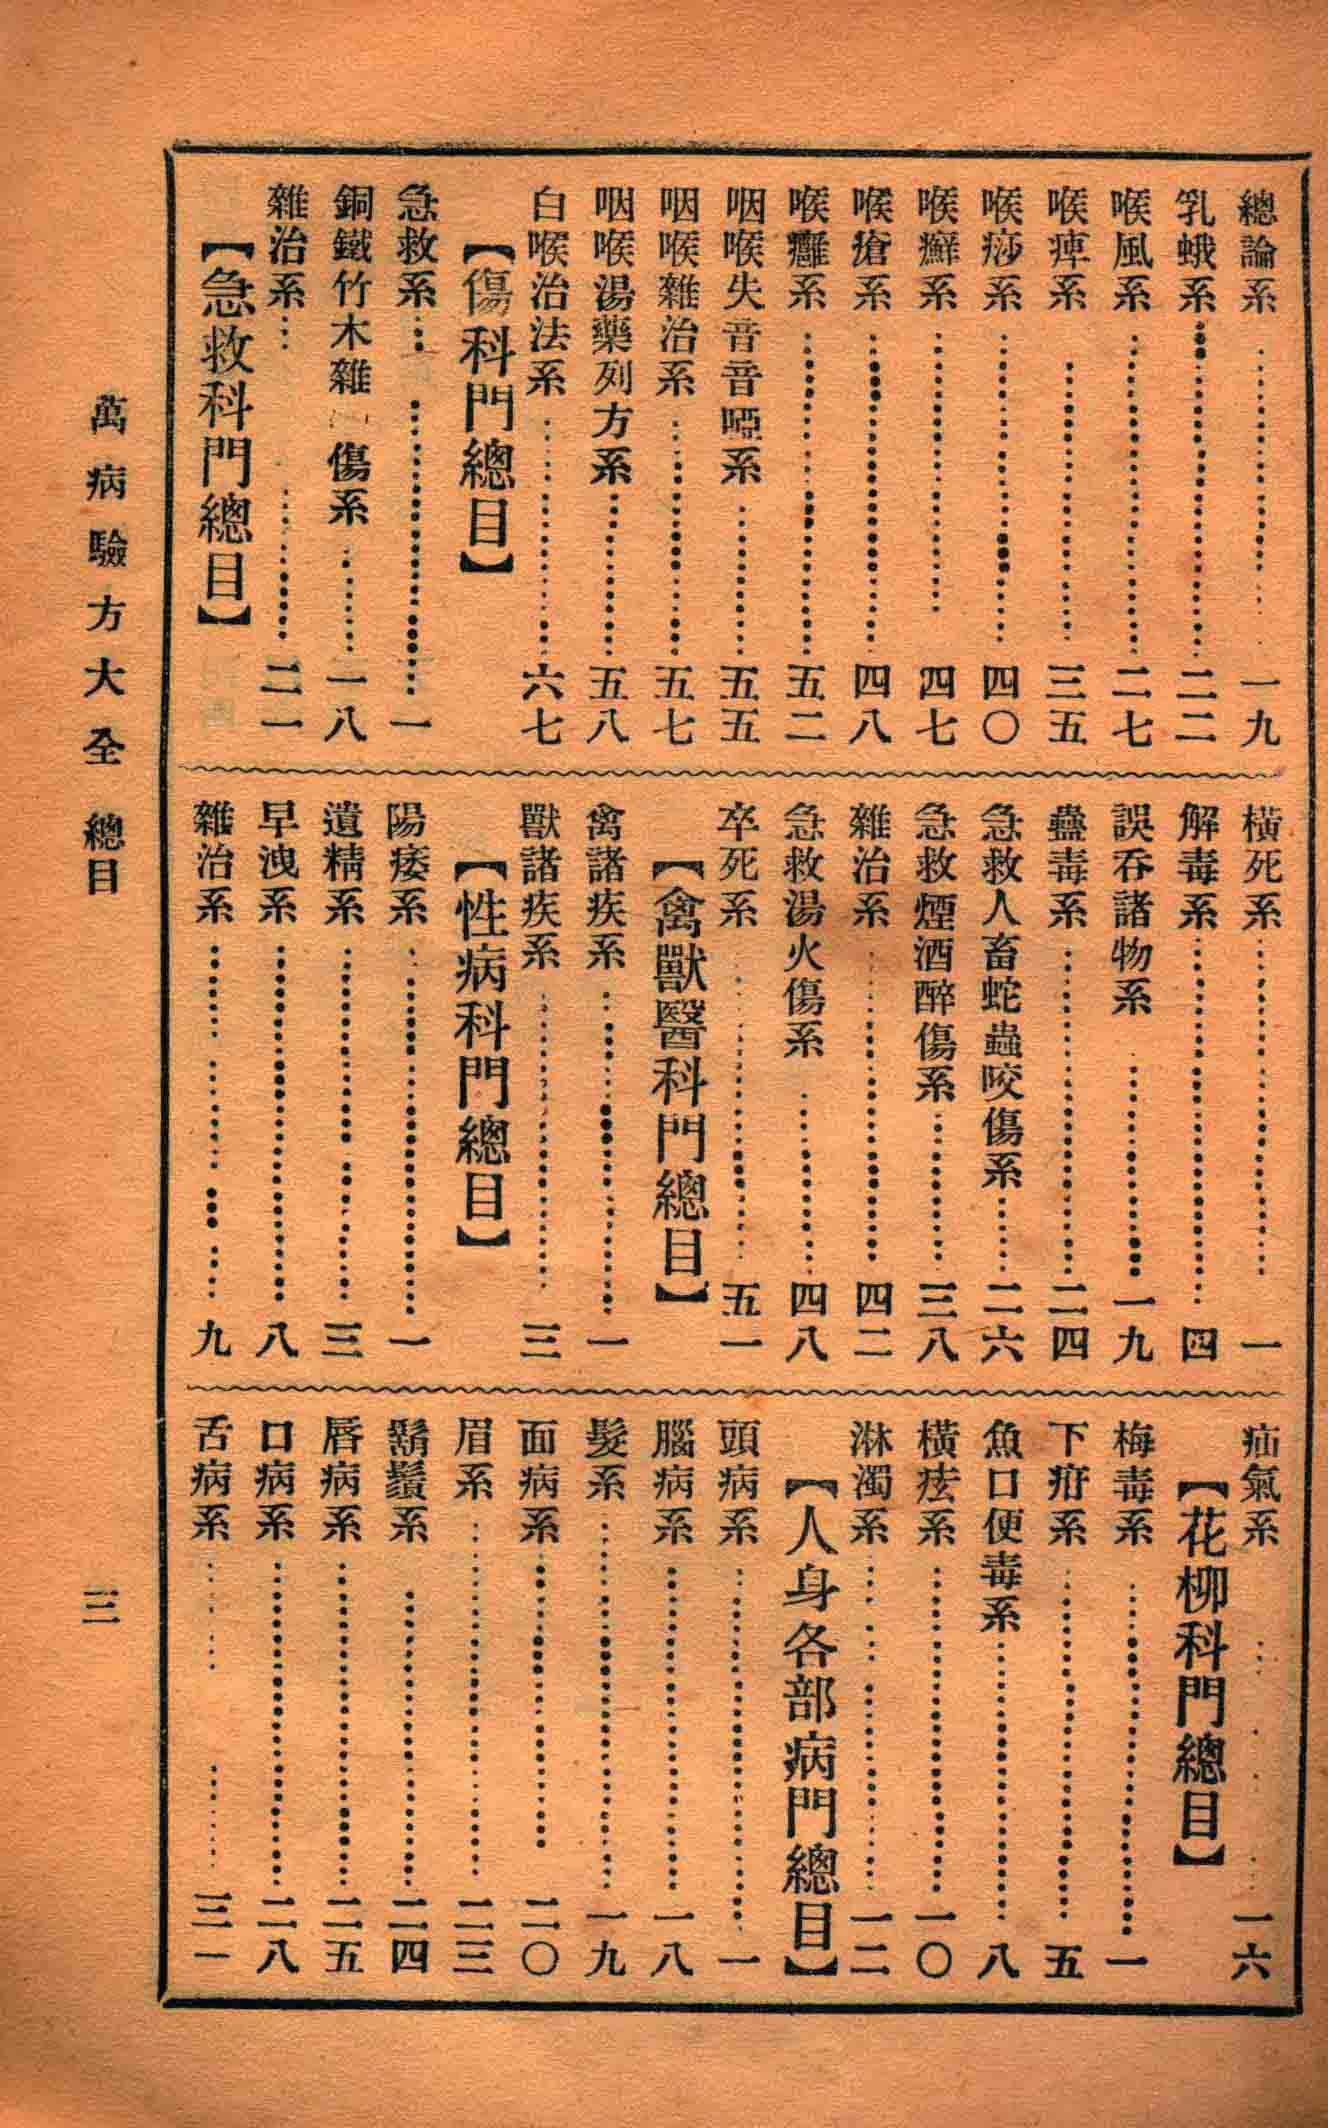 總論系………一九
乳蛾系………二二
喉風系………二七
喉痺系………三五
喉痧系………四〇
喉癬系………四七
喉瘡系………四八
喉癰系………五二
咽喉失音音啞系………五五
咽喉雜治系………五七
咽喉湯藥列方系………五八
白喉治法系………六七
【傷科門總目】
急救系………一
銅鐵竹木雜傷系………一八
雜治系………二一
【急救科門總目】
橫死系………一
解毒系………四
誤吞諸物系………一九
蠱毒系………二四
急救人畜蛇蟲咬傷系………二六
急救煙酒醉傷系………三八
雜治系………四二
急救湯火傷系………四八
卒死系………五一
【禽獸醫科門總目】
禽諸疾系………一
獸諸疾系………三
【性病科門總目】
陽痿系………一
遺精系………三
早洩系………八
雜治系………九
疝氣系………一六
【花柳科門總目】
梅毒系………一
下疳系………五
魚口便毒系………八
橫痃系………一〇
淋濁系………一二
【人身各部病門總目】
頭病系………一
腦病系………一八
髮系………一九
面病系………二〇
眉系………二三
鬍鬚系………二四
唇病系………二五
口病系………二八
舌病系………三一
萬病驗方大全 總目
三